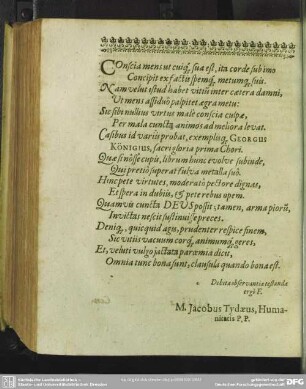 Conscia mens ut cuiq; sua est, ita corde sub imo
Concipit ex factis spemq́;, metumq́; suis.
Nam velut istud habet vitiū inter cætera damni,
Ut mens assiduò palpitet ægra metu:
Sic sibi nullius virtus malè conscia culpæ,
Per mala cunctis animos ad meliora levat.
Casibus id variis probat, exempliq́; GEORGUS
KÖNIGIUS, sacri gloria prima Chori.
Quæ si nosse cupis, librum hunc evolve subinde,
Qui pretiò superat fulva metalla suô.
Hinc pete virtutes, moderatò pectore dignas,
Et spera in dubiis, & pete rebus opem.
Quamvis cuncta DEUS possit, tamen, arma piorū,
Invictus nescit sustinuisse preces.
Deniq́;, quicquid agis, prudenter respice finem,
Sic vitiis vacuum corq́;, animumq́; geres,
Et, veluti vulgo jactata parœmia dicit,
Omnia tunc bona sunt, clausula quando bona est.
Debitæ observantiæ testandæ
ergò F.
M. Jacobus Tydæus, Huma-
nitatis P. P.
DFG